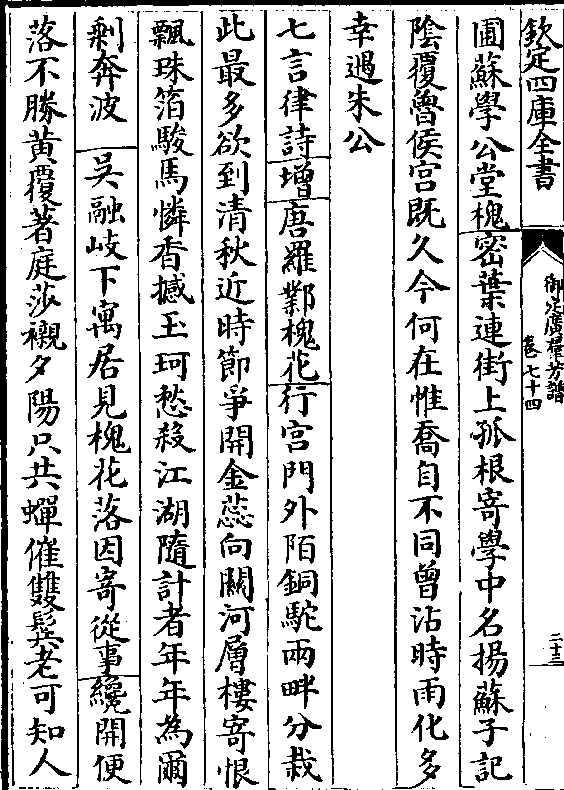 欽定四庫全書
御定廣羣芳譜
卷七十四
二十三
圃蘇學公堂槐密葉連街上孤根寄學中名揚蘇子記
陰覆魯侯宮既久今何在惟喬自不同曾沾時雨化多
幸遇朱公
七言律詩增唐羅鄴槐花行宮門外陌銅駝兩畔分栽
此最多欲到清秋近時節爭開金蕊向關河層樓寄恨
飄珠箔駿馬憐香撼玉珂愁殺江湖隨計者年年為爾
剩奔波吳融岐下寓居見槐花落因寄從事纔開便
落不勝黃覆著庭莎襯夕陽只共蟬催雙鬢老可知人